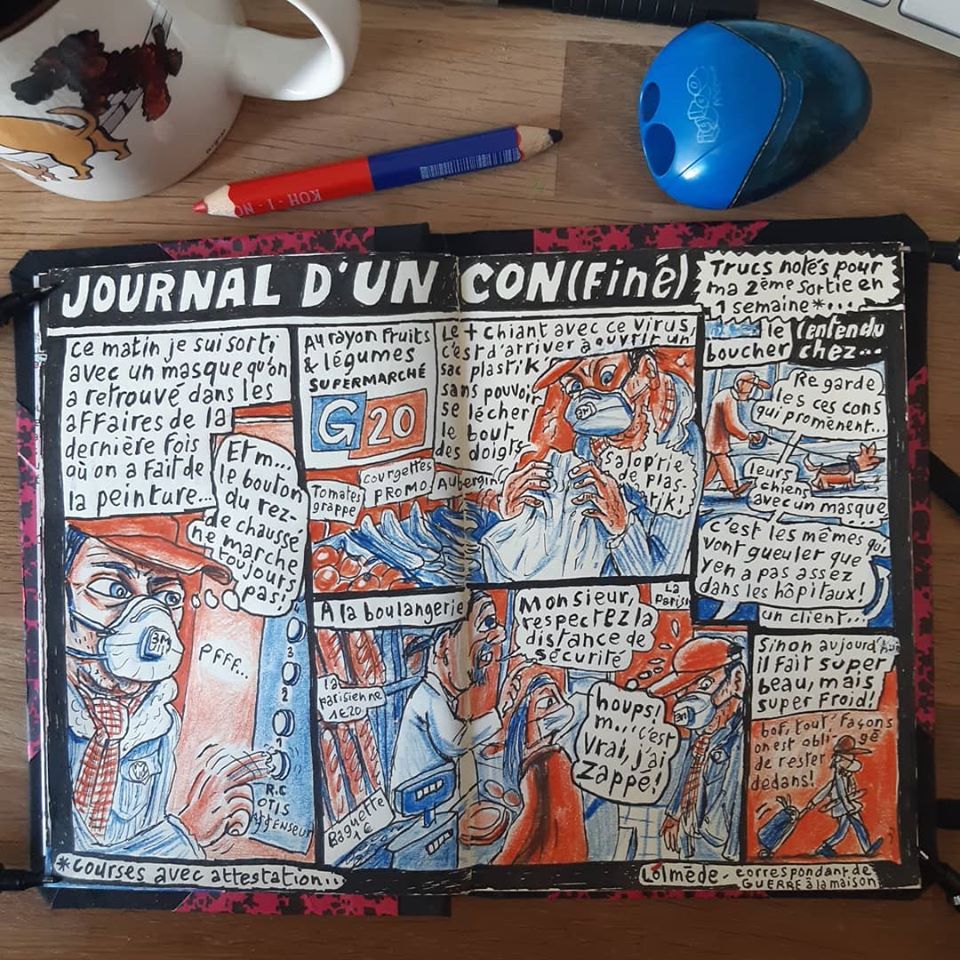 KOH-I-NO
JOURNAL D'UN CON(Finé)
Trucs notés pour
ma 2ème sortie en
1 semaine*...
ce matin je sui sorti
avec un masque qu'on
a retrouvé dans les
affaires de la
dernière fois
où on a fait de
la peinture...
Et m...
le bouton
du rez-
de chaussé
ne marche
toujours
pas!
3M
PFFF...
3
2
1
R.C
OTIS
*courses avec attestation...
Au rayon fruits
& légumes
SUPERMARCHÉ
G20
Tomates
grappe
courgettes
PROMO
Aubergin
Le + chiant avec ce virus,
c'est d'arriver à ouvrir un
sac plastik
sans pouvoir
se lécher
le bout
des doigts
3M
saloprie
de plas-
tik!
le
boucher
(entendu
chez...
Regarde
les ces cons
qui promènent...
leurs
chiens
avec un masque...
c'est les mêmes qui
vont gueuler que
y en a pas assez
dans les hôpitaux!
un client...
A la boulangerie
la
parisienne
1€20
Baguette
1€
Monsieur,
respectez la
distance de
sécurité
La
Parisi
houps!
m... c'est
vrai, j'ai
zappé!
3M
Sinon aujourd'hui
il fait super
beau, mais
super froid!
bof, tout' façons
on est obligé
de rester
dedans!
Lolmède - correspondant de
GUERRE à la maison